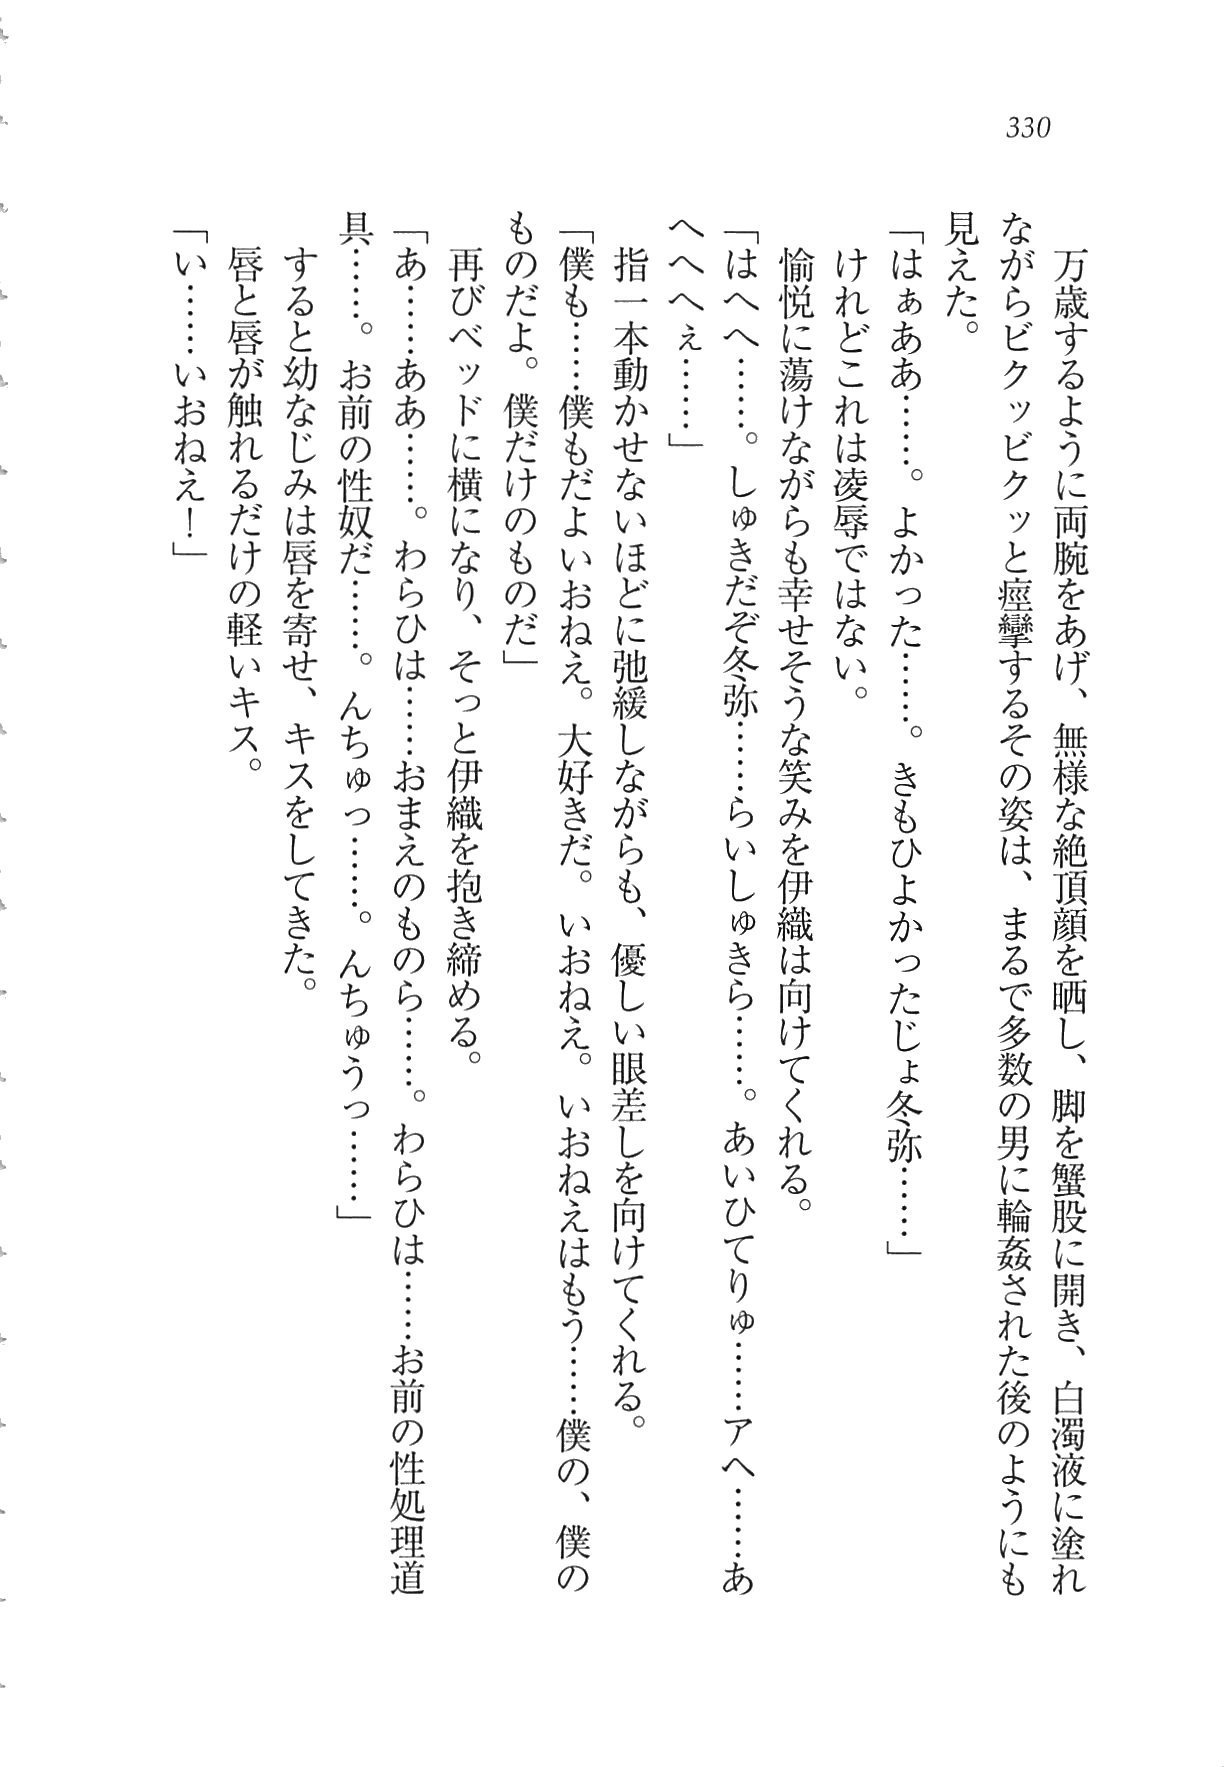 330
　万歳するように両腕をあげ、無様な絶頂顔を晒し、脚を蟹股に開き、白濁液に塗れ
ながらビクッビクッと痙攣するその姿は、まるで多数の男に輪姦された後のようにも
見えた。
「はぁああ……。よかった……。きもひよかったじょ冬弥……」
　けれどこれは凌辱ではない。
　愉悦に蕩けながらも幸せそうな笑みを伊織は向けてくれる。
「はへへ……。しゅきだぞ冬弥……らいしゅきら……。あいひてりゅ……アヘ……あ
へへへぇ……」
　指一本動かせないほどに弛緩しながらも、優しい眼差しを向けてくれる。
「僕も……僕もだよいおねえ。大好きだ。いおねえ。いおねえはもう……僕の、僕の
ものだよ。僕だけのものだ」
　再びベッドに横になり、そっと伊織を抱き締める。
「あ……ああ……。わらひは……おまえのものら……。わらひは……お前の性処理道
具……。お前の性奴だ……。んちゅっ……。んちゅうっ……」
　すると幼なじみは唇を寄せ、キスをしてきた。
　唇と唇が触れるだけの軽いキス。
「い……いおねえ！」